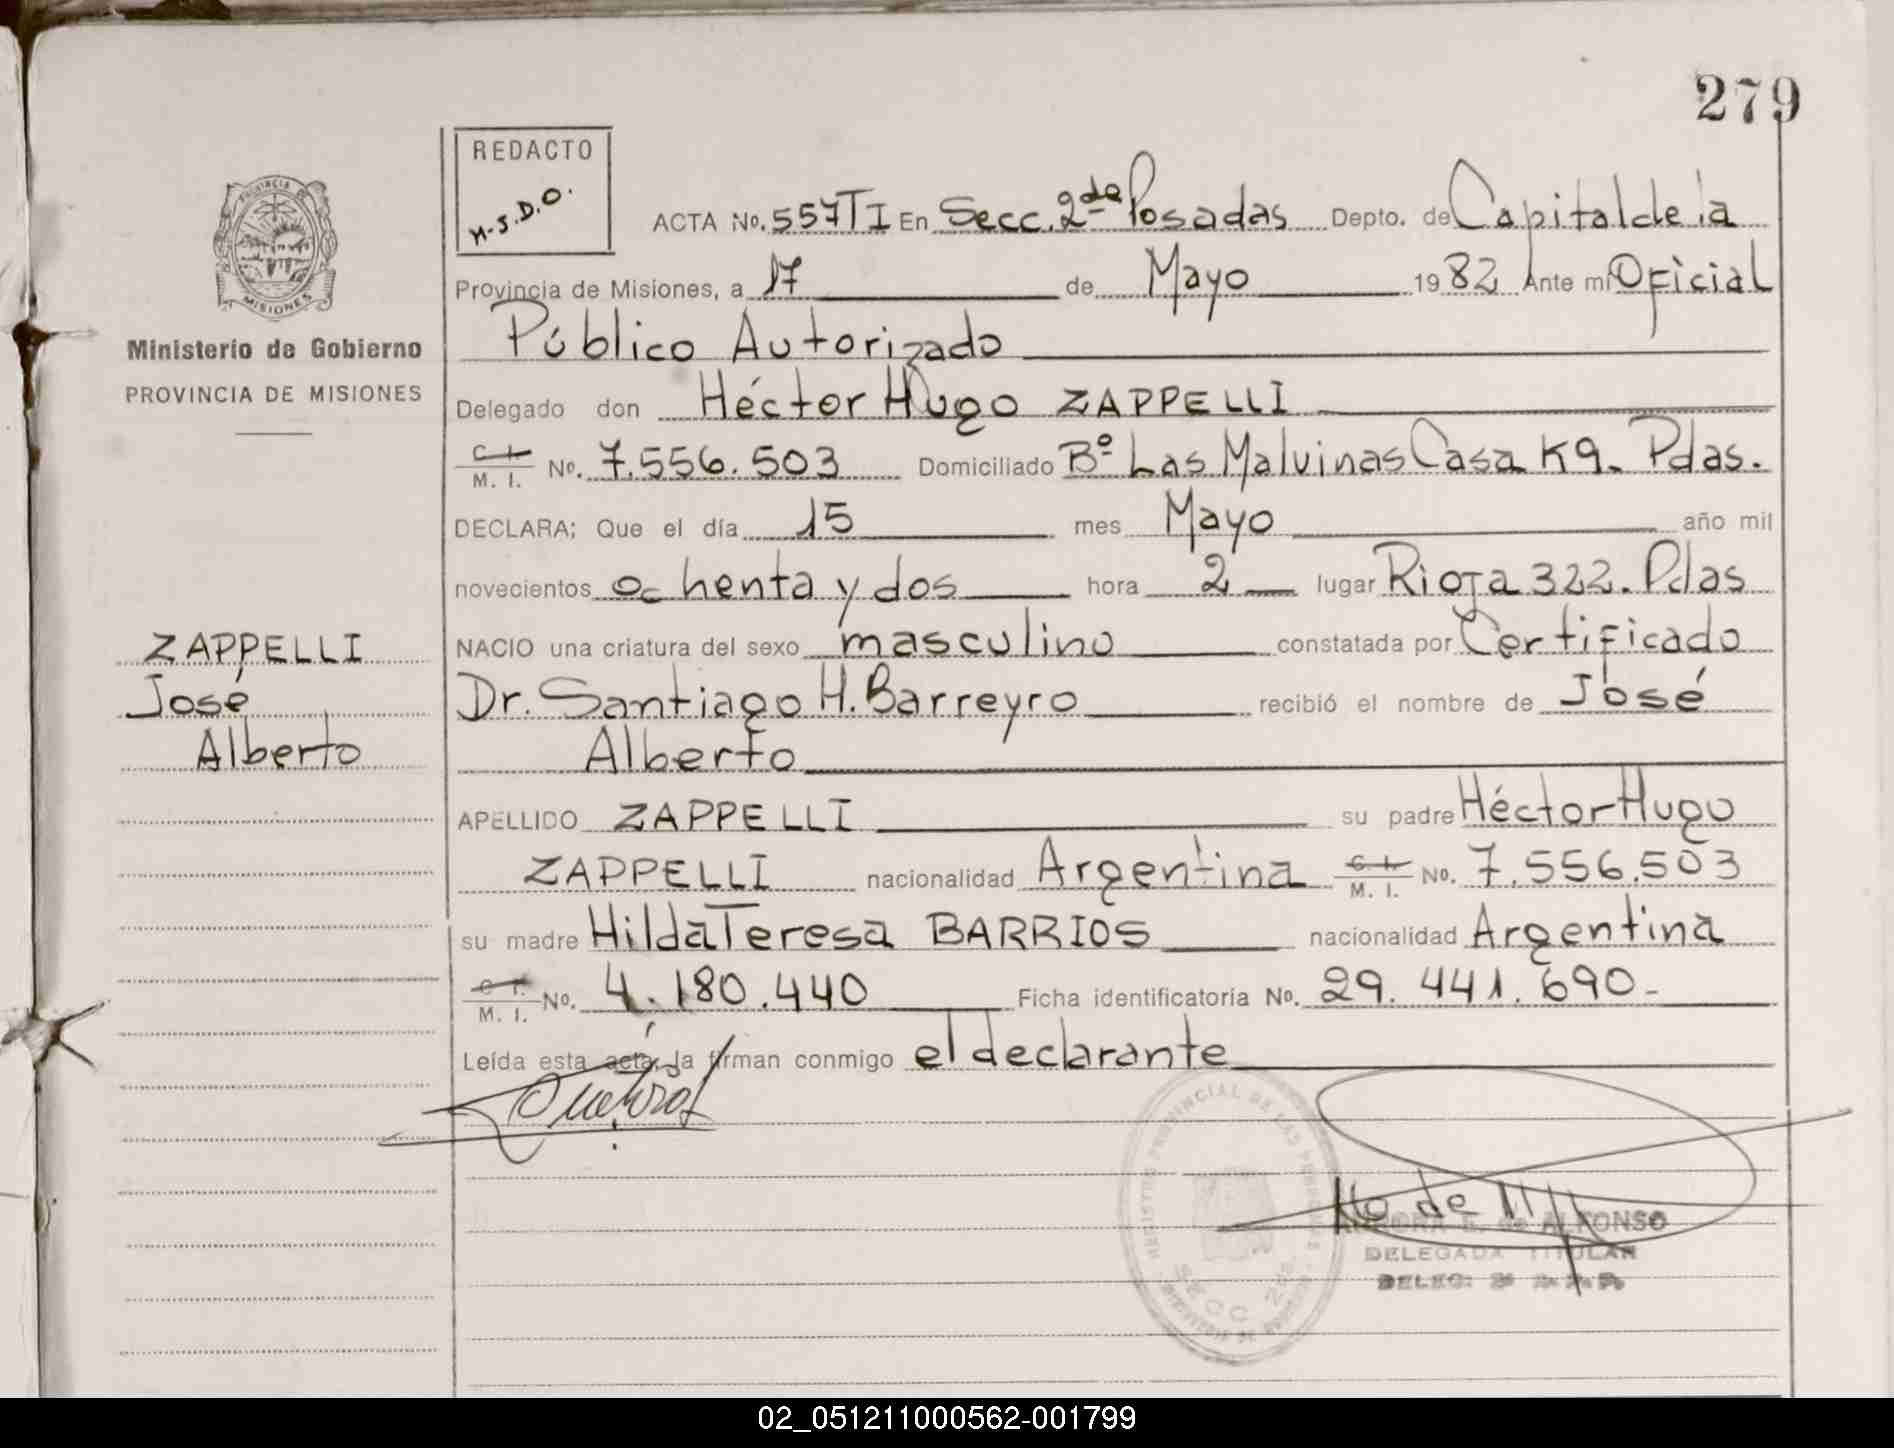 279
REDACTO
M.S.D.O.
PROVINCIA
MISIONES
Ministerio de Gobierno
PROVINCIA DE MISIONES
ACTA No. 557 T I En Secc. 2da Posadas Depto. de Capital de la
Provincia de Misiones, a 17 de Mayo 1982 Ante mi Oficial
Público Autorizado
Delegado don Héctor Hugo ZAPPELLI
C. I. M. I. No. 7.556.503 Domiciliado Bº Las Malvinas Casa K9. Pdas.
DECLARA; Que el día 15 mes Mayo año mil
novecientos ochenta y dos hora 2 lugar Rioja 322. Pdas
NACIO una criatura del sexo masculino constatada por Certificado
Dr. Santiago H. Barreyro recibió el nombre de José
Alberto
ZAPPELLI
José
Alberto
APELLIDO ZAPPELLI su padre Héctor Hugo
ZAPPELLI nacionalidad Argentina C. I. M. I. No. 7.556.503
su madre Hilda Teresa BARRIOS nacionalidad Argentina
C. I. M. I. No. 4.180.440 Ficha identificatoria No. 29.441.690-
Leída esta acta, la firman conmigo el declarante
REGISTRO PROVINCIAL DE LAS PERSONAS
SECC. 2da.
de ALFONSO
DELEGADA TITULAR
DELEG.
02_051211000562-001799